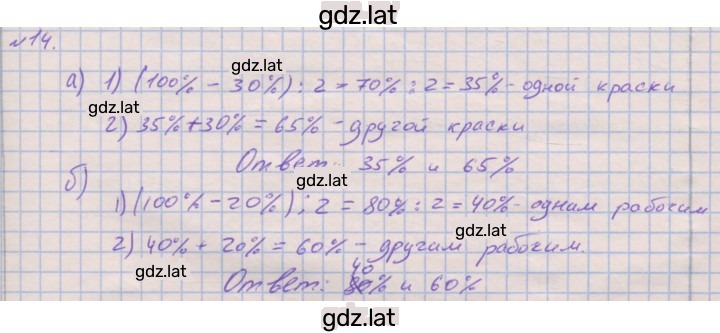 gdz.lat
№14.
gdz.lat
а) 1) (100% - 30%) : 2 = 70% : 2 = 35% - одной краски
gdz.lat
2) 35% + 30% = 65% - другой краски
Ответ: 35% и 65%
gdz.lat
б)
1) (100% - 20%) : 2 = 80% : 2 = 40% - одним рабочим
gdz.lat
2) 40% + 20% = 60% - другим рабочим.
gdz.lat
Ответ: 40% и 60%
gdz.lat